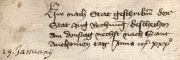 Hie nach Stat geschriben der
Stat Aug Rechnung, beschechen
Am donstag nechst nach Sant
Anthonien tag Anno etc xxxo
19. January